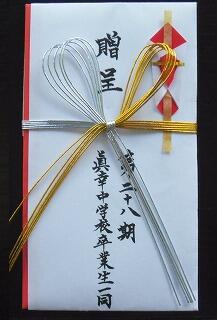 贈呈
第二十八期
真幸中学校卒業生一同